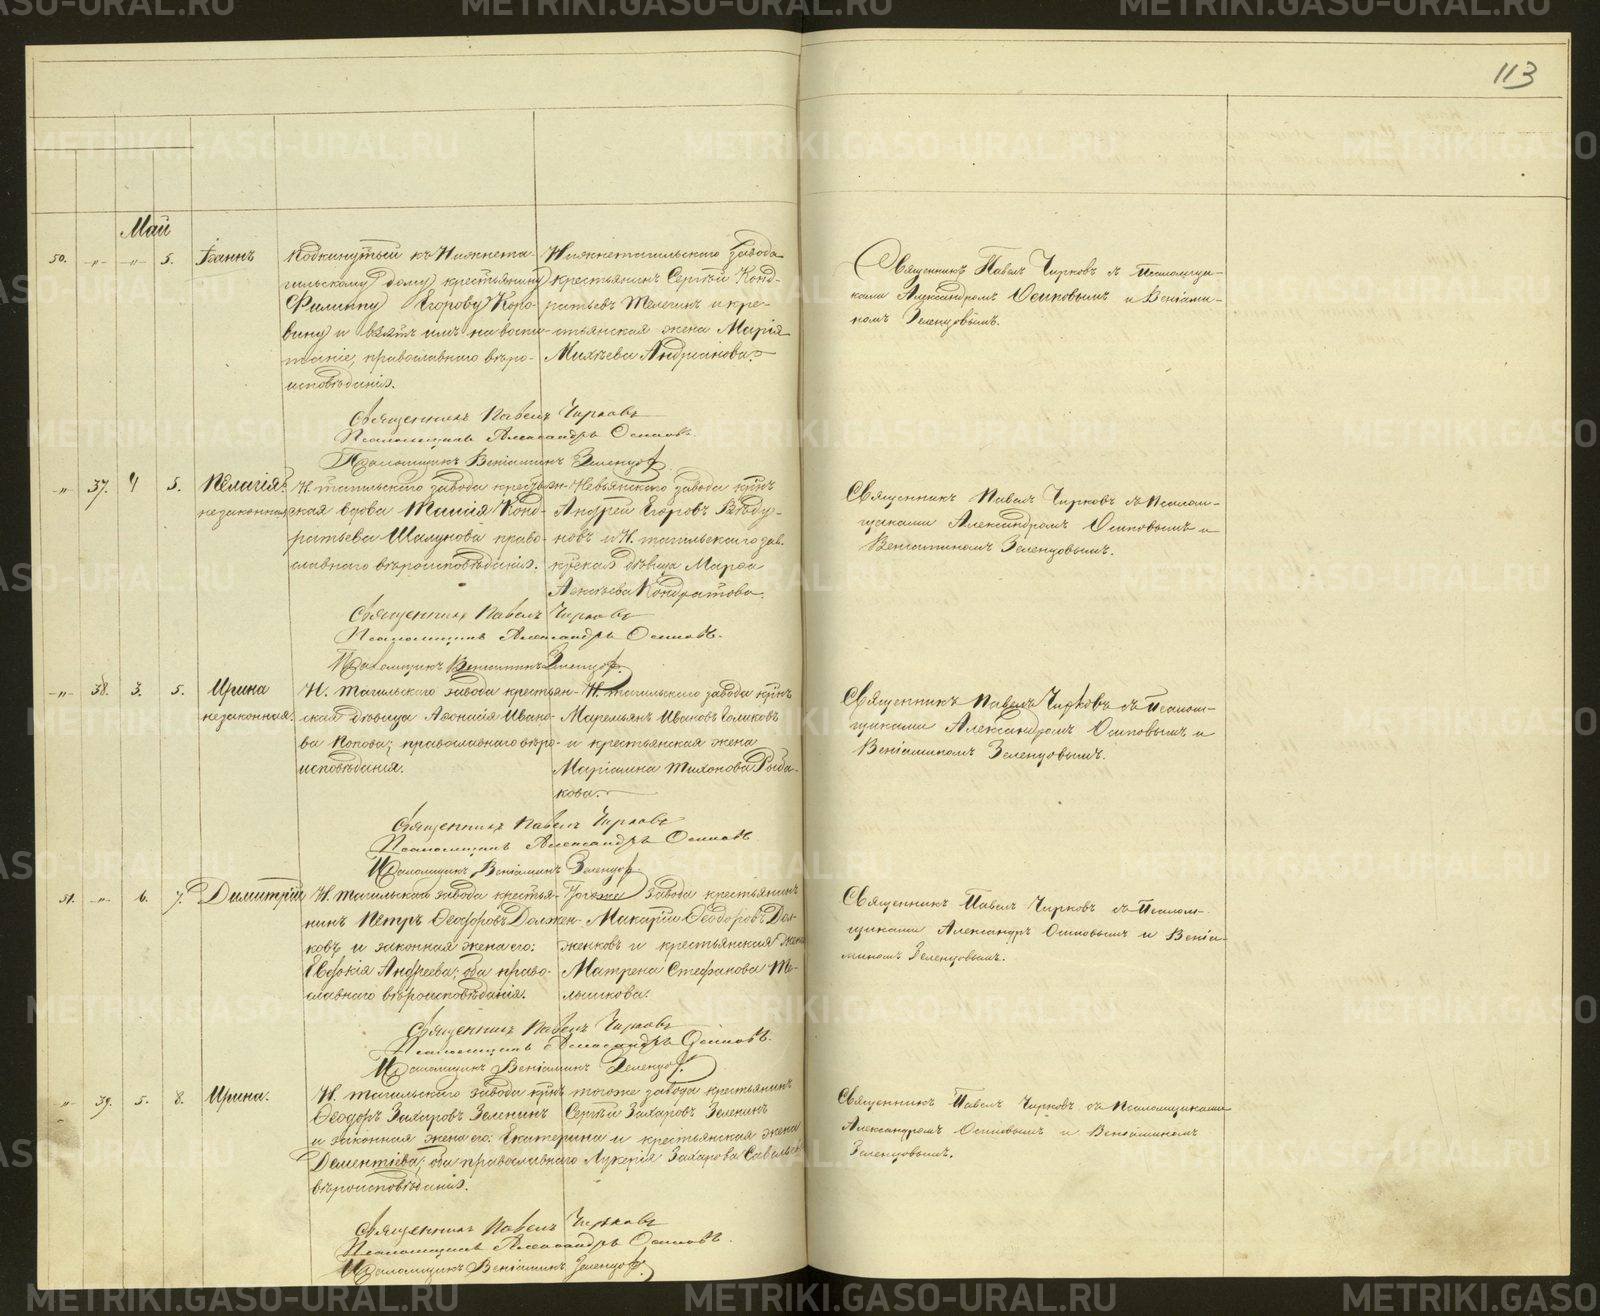 113
Май
50. -„- -„- 5. Іоаннъ
Подкинутый къ Нижнета-
гильскому дому крестьянину
Филиппу Егорову Коро-
вину и взятъ имъ на воспи-
таніе, православнаго вѣро-
исповѣданія.
Нижнетагильскаго завода
крестьянинъ Сергѣй Конд-
ратьевъ Телегинъ и кре-
стьянская жена Марія
Михѣева Андріанова.
Священникъ Павелъ Чирковъ съ Псаломщи-
ками Александромъ Осиповымъ и Веніами-
номъ Зеленцовымъ.
Священникъ Павелъ Чирковъ
Псаломщикъ Александръ Осиповъ.
Псаломщикъ Веніаминъ Зеленцовъ
-„- 37. 4 5. Пелагія
незаконная
Н. тагильскаго завода крестьян-
ская вдова Таисія Конд-
ратьева Шалунова право-
славнаго вѣроисповѣданія.
Невьянскаго завода кр̃нъ
Андрей Егоровъ
новъ и Н. тагильскаго зав.
кр̃ская дѣвица Марѳа
Алексѣева Кондратова.
Священникъ Павелъ Чирковъ съ Псалом-
щиками Александромъ Осиповымъ и
Веніаминомъ Зеленцовымъ.
Священникъ Павелъ Чирковъ
Псаломщикъ Александръ Осиповъ.
Псаломщикъ Веніаминъ Зеленцовъ.
-„- 38. 3. 5. Ирина
незаконная.
Н. тагильскаго завода крестьян-
ская дѣвица Аѳонасія Ивано-
ва Попова; православнаго вѣро-
исповѣданія.
Н. тагильскаго завода кр̃нъ
Маремьянъ Ивановъ Голиковъ
и крестьянская жена
Маріамна Тихонова Рыба-
кова.
Священникъ Павелъ Чирковъ съ Псалом-
щиками Александромъ Осиповымъ и
Веніаминомъ Зеленцовымъ.
Священникъ Павелъ Чирковъ
Псаломщикъ Александръ Осиповъ
Псаломщикъ Веніаминъ Зеленцовъ
51. -„- 6. 7. Димитрій
Н. тагильскаго завода крестья-
нинъ Петръ Ѳеодоровъ Должен-
ковъ и законная жена его:
Евдокія Андреева; оба право-
славнаго вѣроисповѣданія.
Тогоже завода крестьянинъ
Макарій Ѳеодоровъ Дол-
женковъ и крестьянская жена
Матрена Стефанова Ме-
льникова.
Священникъ Павелъ Чирковъ съ Псалом-
щиками Александръ Осиповымъ и Веніа-
миномъ Зеленцовымъ.
Священникъ Павелъ Чирковъ
Псаломщикъ Александръ Осиповъ.
Псаломщикъ Веніаминъ Зеленцовъ.
-„- 39. 5. 8. Ирина.
Н. тагильскаго завода кр̃нъ
Ѳеодоръ Захаровъ Зеленинъ
и законная жена его: Екатерина
Дементіева; оба православнаго
вѣроисповѣданія.
тогоже завода крестьянинъ
Сергѣй Захаровъ Зеленинъ
и крестьянская жена
Лукерія Захарова
Священникъ Павелъ Чирковъ съ Псаломщиками
Александромъ Осиповымъ и Веніаминомъ
Зеленцовымъ.
Священникъ Павелъ Чирковъ
Псаломщикъ Александръ Осиповъ.
Псаломщикъ Веніаминъ Зеленцовъ.
METRIKI.GASO-URAL.RU